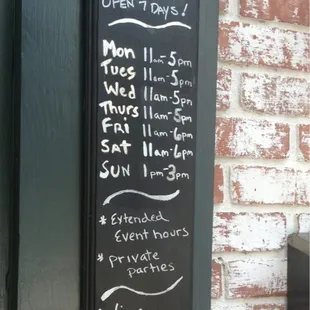 OPEN 7 DAYS!
Mon 11am-5pm
Tues 11am-5pm
Wed 11am-5pm
Thurs 11am-5pm
FRI 11am-6pm
SAT 11am-6pm
SUN 1pm-3pm
* Extended
Event hours
* private
parties